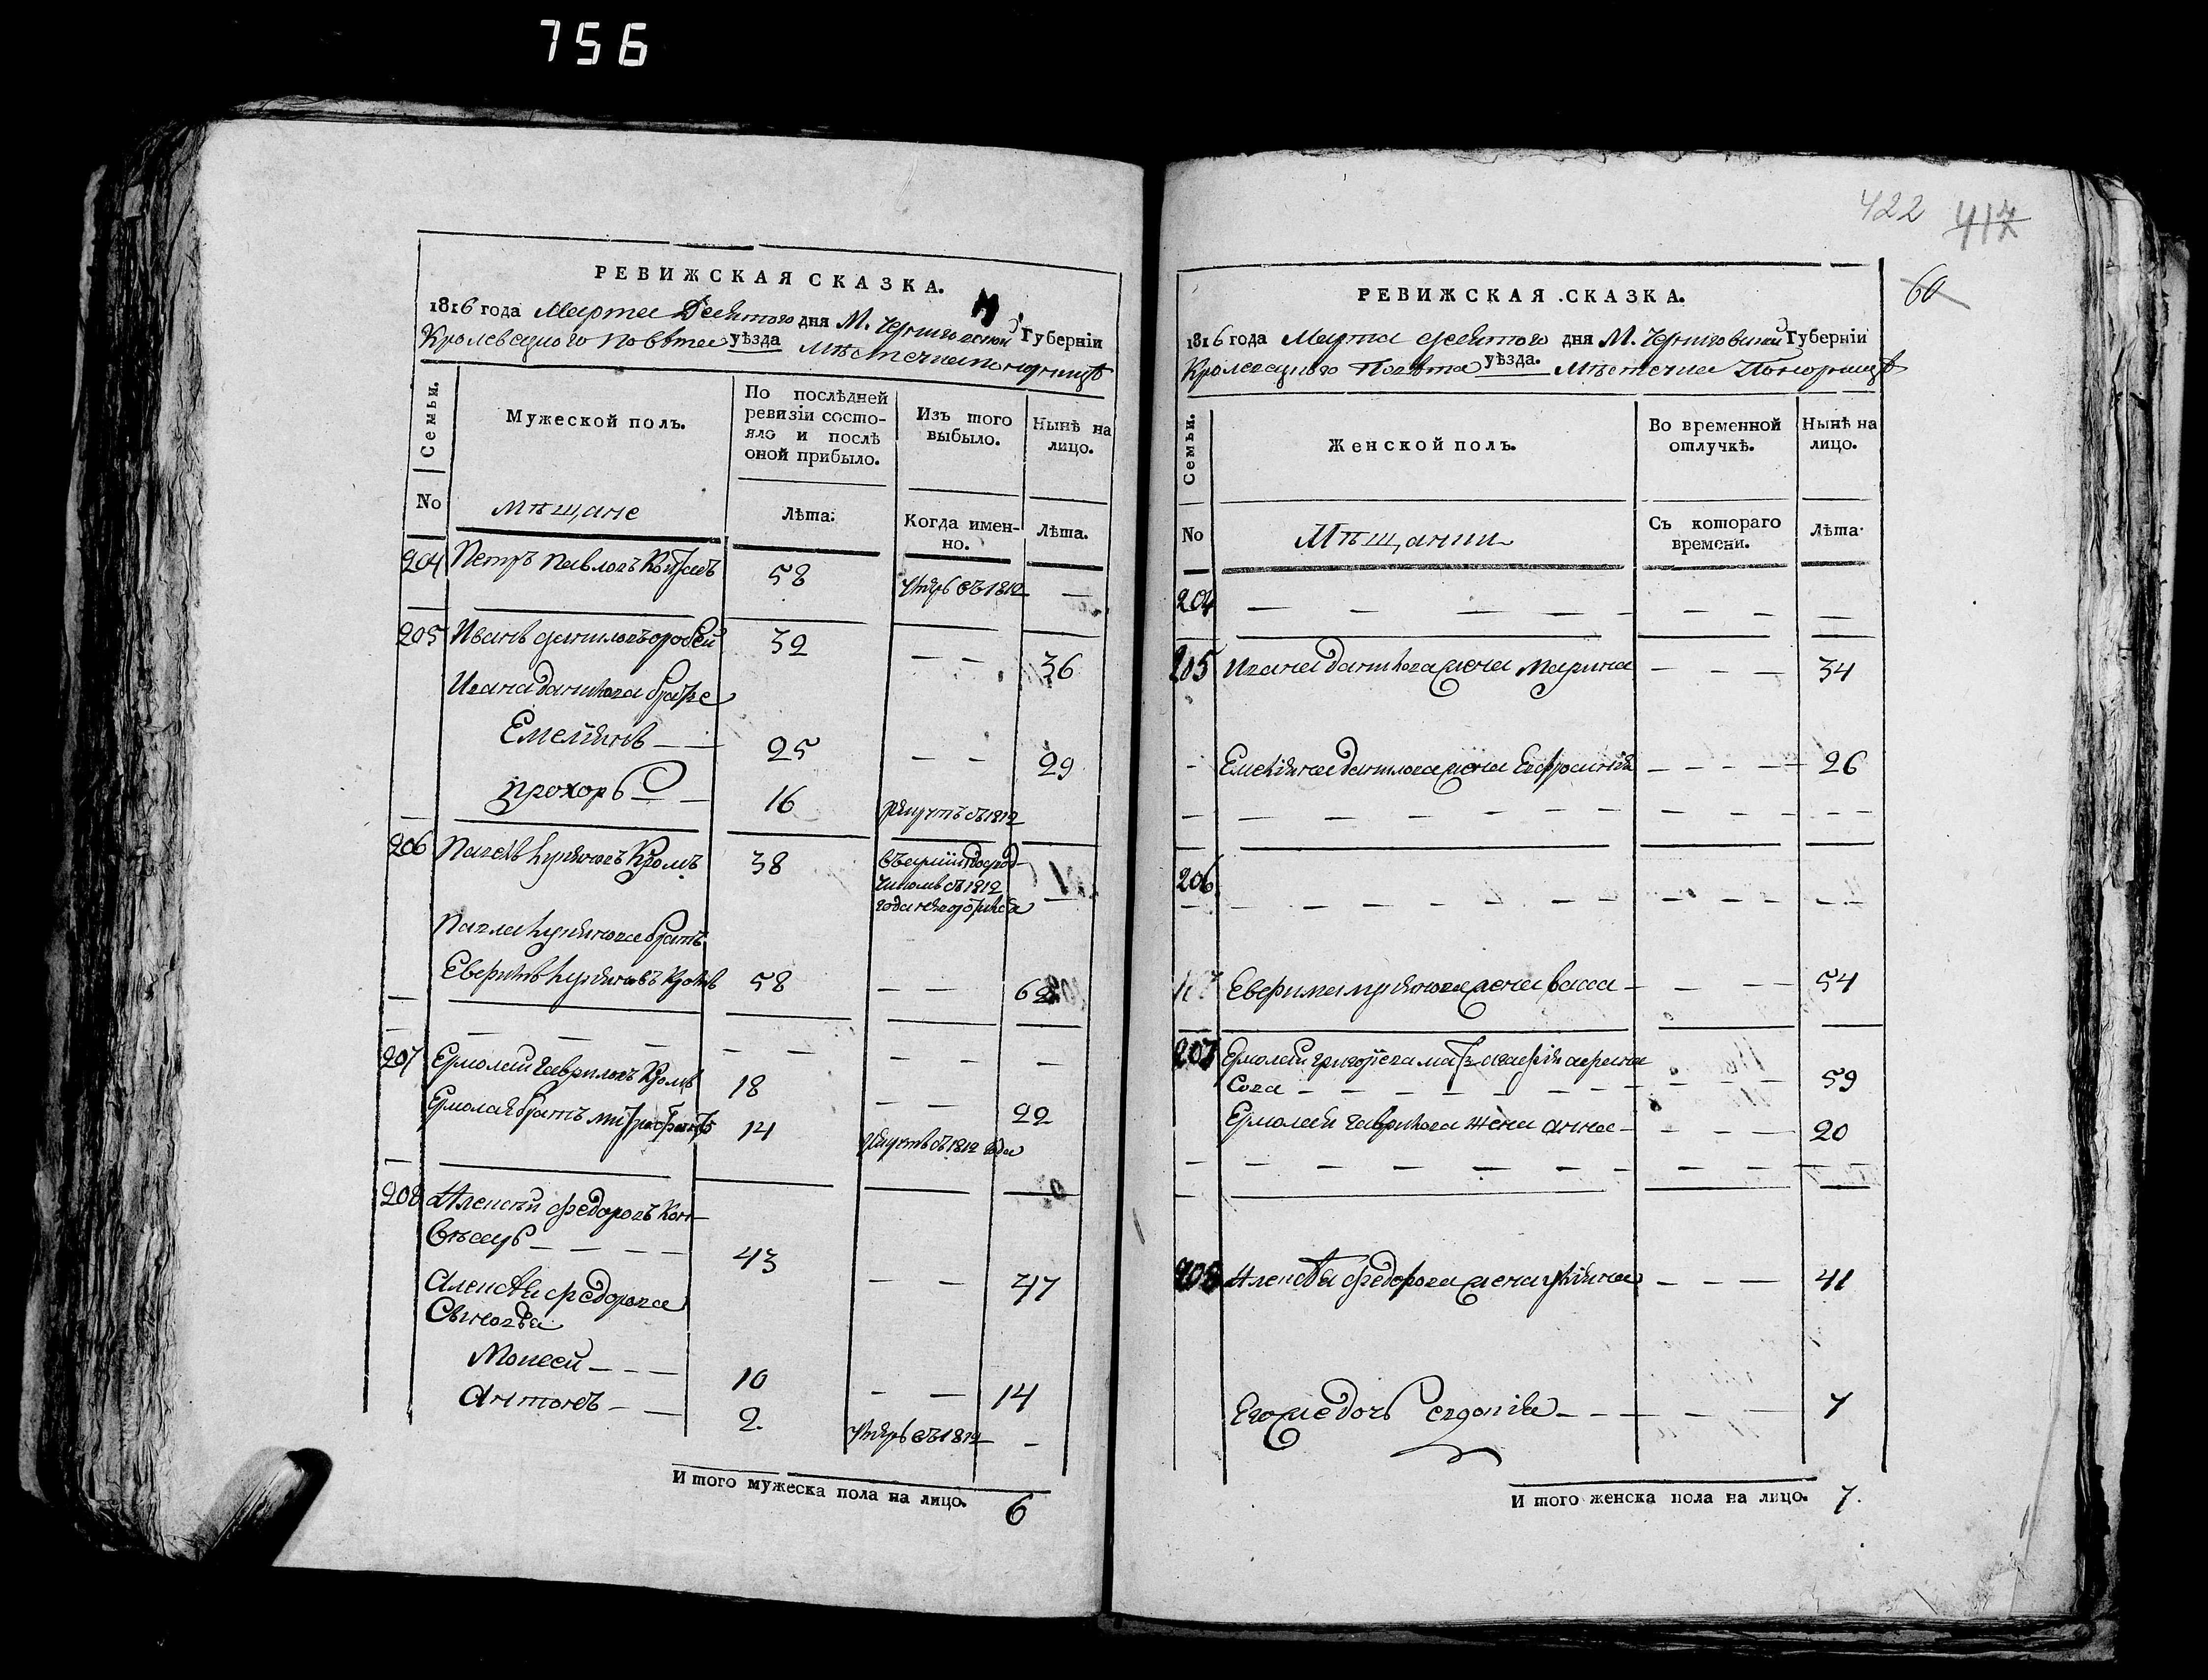 756
РЕВИЖСКАЯ СКАЗКА.
1816 года Марта Десятого дня М. Черниговской Губерніи
Кролевецкого Повѣта уѣзда Мѣстечка Понорницѣ
Семьи.
Мужеской полъ.
По послѣдней
ревизіи состо-
яло и послѣ
оной прибыло.
Изъ того
выбыло.
Нынѣ на
лицо.
No
мѣщане
Лѣта.
Когда имен-
но.
Лѣта.
204 Петръ Павловъ 58 умръ въ 1812 —
205 Иванъ Даниловъ 32 — — 36
Ивана Данилова братье
Емелянъ — — 25 — — 29
Прохоръ — — 16 въ 1812
206 Павелъ Кромъ 38
съ 1812
года
Павла братъ
58 — — 62
207 Ермолай Гавриловъ Кромъ 18 — — 22
Ермолая братъ Митрофанъ 14 въ 1812 года
208 Алексѣй Федоровъ Кон-
43 — — 47
Алексѣя Федорова
Сыновья
Мокей — — — 10 — — 14
Антонъ — — 2. умръ въ 1812 —
И того мужеска пола на лицо. 6
422 417
60
РЕВИЖСКАЯ СКАЗКА.
1816 года Марта десятого дня М. Черниговской Губерніи
Кролевецкого Повѣта уѣзда. Мѣстечка Понорницѣ
Семьи.
Женской полъ.
Во временной
отлучкѣ.
Нынѣ на
лицо.
No
Мѣщанки
Съ котораго
времени.
Лѣта.
204 — — — — — — — —
205 Ивана Данилова жена Марина — — — 34
Емеляна Данилова жена Евфросинія — — — — 26
206
жена Васса — — — — 54
207 Ермолая мать
59
Ермолая Гаврилова жена Анна — — — — 20
208 Алексѣя Федорова жена Уляна — — — 41
Его же дочь Евдокія — — — — — 7
И того женска пола на лицо. 7.